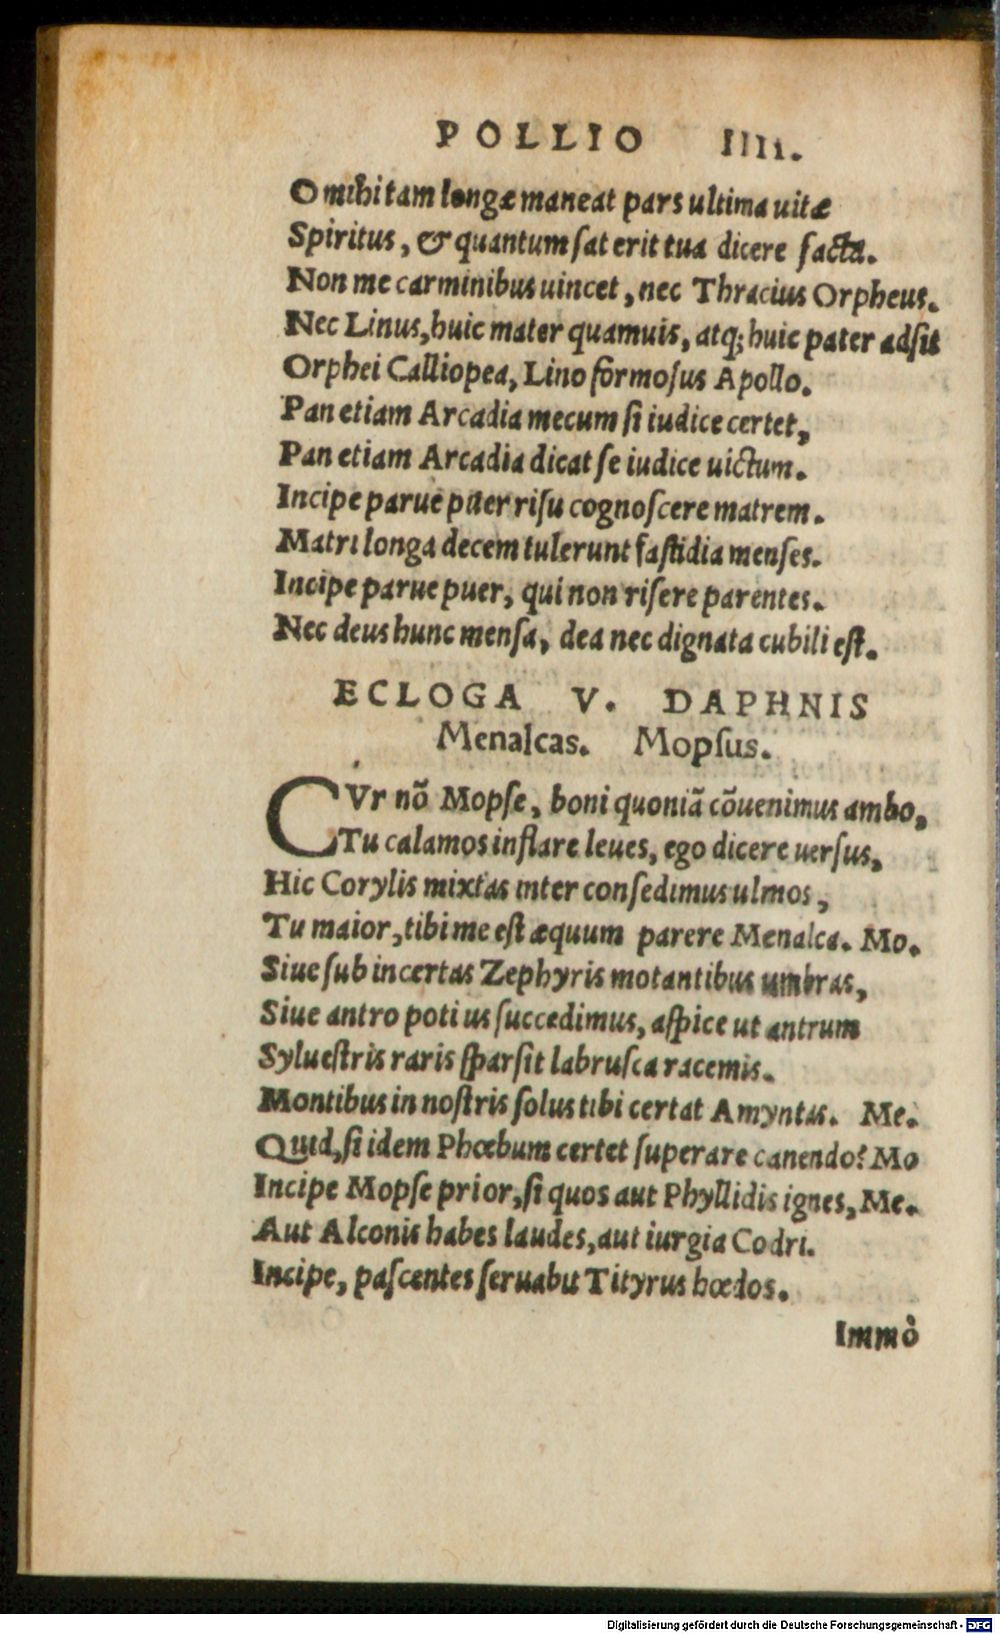 POLLIO IIII.
O mihi tam longæ maneat pars ultima uitæ
Spiritus, & quantum sat erit tua dicere facta.
Non me carminibus uincet, nec Thracius Orpheus.
Nec Linus, huic mater quamuis, atq; huic pater adsit
Orphei Calliopea, Lino formosus Apollo.
Pan etiam Arcadia mecum si iudice certet,
Pan etiam Arcadia dicat se iudice uictum.
Incipe parue puer risu cognoscere matrem.
Matri longa decem tulerunt fastidia menses.
Incipe parue puer, qui non risere parentes.
Nec deus hunc mensa, dea nec dignata cubili est.
ECLOGA V. DAPHNIS
Menalcas. Mopsus.
CVr nõ Mopse, boni quoniã cõuenimus ambo,
Tu calamos inflare leues, ego dicere uersus,
Hic Corylis mixtas inter consedimus ulmos,
Tu maior, tibi me est æquum parere Menalca. Mo.
Siue sub incertas Zephyris motantibus umbras,
Siue antro potius succedimus, aspice ut antrum
Syluestris raris sparsit labrusca racemis.
Montibus in nostris solus tibi certat Amyntas. Me.
Quid, si idem Phœbum certet superare canendo? Mo
Incipe Mopse prior, si quos aut Phyllidis ignes, Me.
Aut Alconis habes laudes, aut iurgia Codri.
Incipe, pascentes seruabit Tityrus hœdos.
Immò
Digitalisierung gefördert durch die Deutsche Forschungsgemeinschaft - DFG